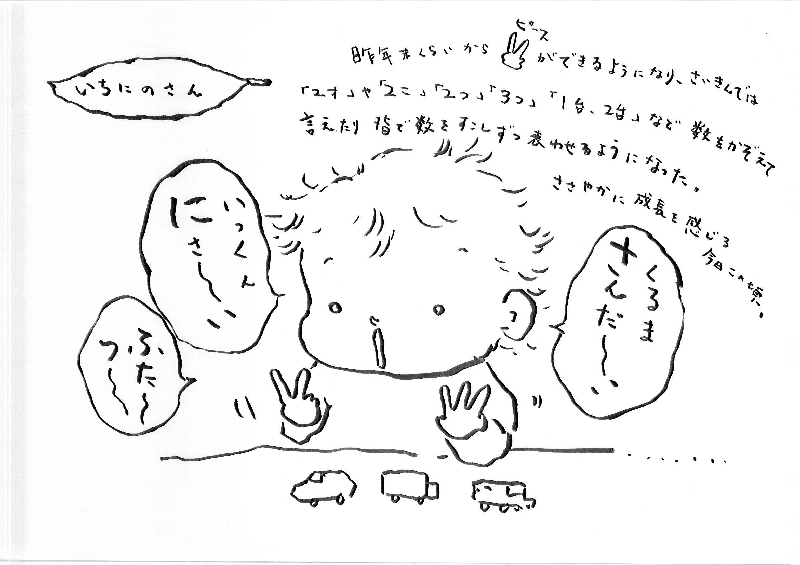 いちにのさん
ピース
昨年末くらいから ができるようになり、さいきんでは
「2才」や「2こ」「2つ」「3つ」「1台、2台」など 数をかぞえて
言えたり 指で数をすこしずつ表わせるようになった。
ささやかに成長を感じる
今日この頃。
いっくん
にさ〜い
ふた〜
つ〜
くるま
さんだ〜い